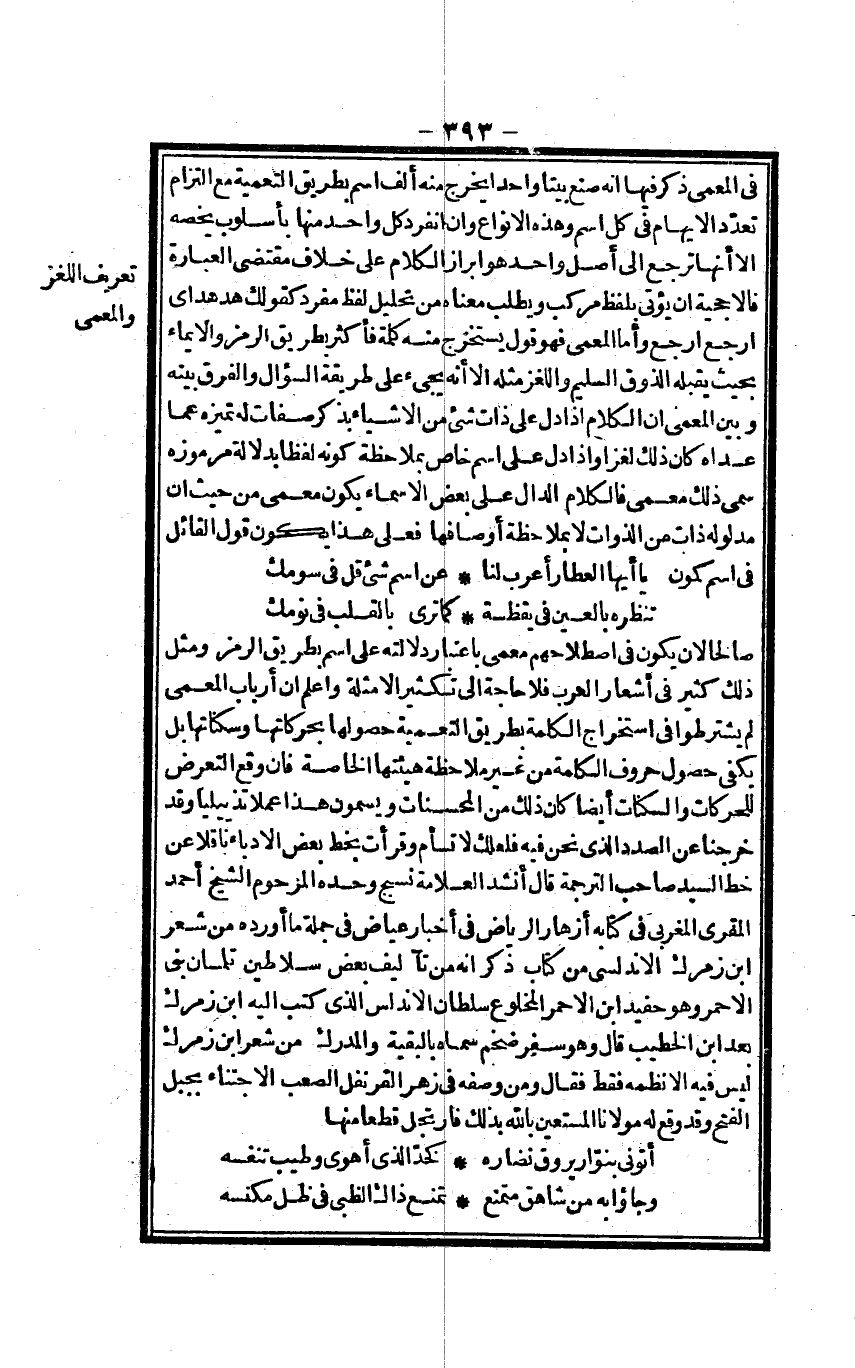 - ٣٩٣ -
فى المعمى ذكر فيها انه صنع بيتا واحدا يخرج منه ألف اسم بطريق التعمية مع التزام
تعدّد الايهام فى كل اسم وهذه الانواع وان انفرد كل واحد منها بأسلوب يخصه
الا أنها ترجع الى أصل واحد هو ابراز الكلام على خلاف مقتضى العبارة
تعريف اللغز
والمعمى
فالاحجية ان يؤتى بلفظ مركب ويطلب معناه من تحليل لفظ مفرد كقولك هدهد اى
ارجع ارجع وأما المعمى فهو قول يستخرج منه كلمة فأكثر بطريق الرمز والايماء
بحيث يقبله الذوق السليم واللغز مثله الا أنه يجىء على طريقة السؤال والفرق بينه
وبين المعمى ان الكلام اذا دل على ذات شئ من الاشياء بذكر صفات له تميزه عما
عداه كان ذلك لغزا واذا دل على اسم خاص بملاحظة كونه لفظا بدلالة مرموزه
سمى ذلك معمى فالكلام الدال على بعض الاسماء يكون معمى من حيث ان
مدلوله ذات من الذوات لا بملاحظة أوصافها فعلى هذا يكون قول القائل
فى اسم كمون يا أيها العطار أعرب لنا * عن اسم شئ قل فى سومك
تنظره بالعين فى يقظة * كما ترى بالقلب فى نومك
صالحا لان يكون فى اصطلاحهم معمى باعتبار دلالته على اسم بطريق الرمز ومثل
ذلك كثير فى أشعار العرب فلا حاجة الى تكثير الامثلة واعلم ان أرباب المعمى
لم يشترطوا فى استخراج الكلمة بطريق التعمية حصولها بحركاتها وسكناتها بل
يكفى حصول حروف الكلمة من غير ملاحظة هيئتها الخاصة فان وقع التعرض
للحركات والسكنات أيضا كان ذلك من المحسنات ويسمون هذا عملا تذييليا وقد
خرجنا عن الصدد الذى نحن فيه فلعلك لا تسأم وقرأت بخط بعض الادباء ناقلا عن
خط السيد صاحب الترجمة قال أنشد العلامة نسيج وحده المرحوم الشيخ أحمد
المقرى المغربى فى كتابه أزهار الرياض فى أخبار عياض فى جملة ما أورده من شعر
ابن زمرك الاندلسى من كتاب ذكر انه من تآليف بعض سلاطين تلمسان بنى
الاحمر وهو حفيد ابن الاحمر المخلوع سلطان الاندلس الذى كتب اليه ابن زمرك
بعد ابن الخطيب قال وهو سفر ضخم سماه بالبقية والمدرك من شعر ابن زمرك
ليس فيه الا نظمه فقط فقال ومن وصفه فى زهر القرنفل الصعب الاجتناء بجبل
الفتح وقد وقع له مولانا المستعين بالله بذلك فارتجل قطعا منها
أتونى بنوّار يروق نضاره * كخدّ الذى أهوى وطيب تنفسه
وجاؤا به من شاهق متمنع * تمنع ذاك الظبى فى ظل مكنسه